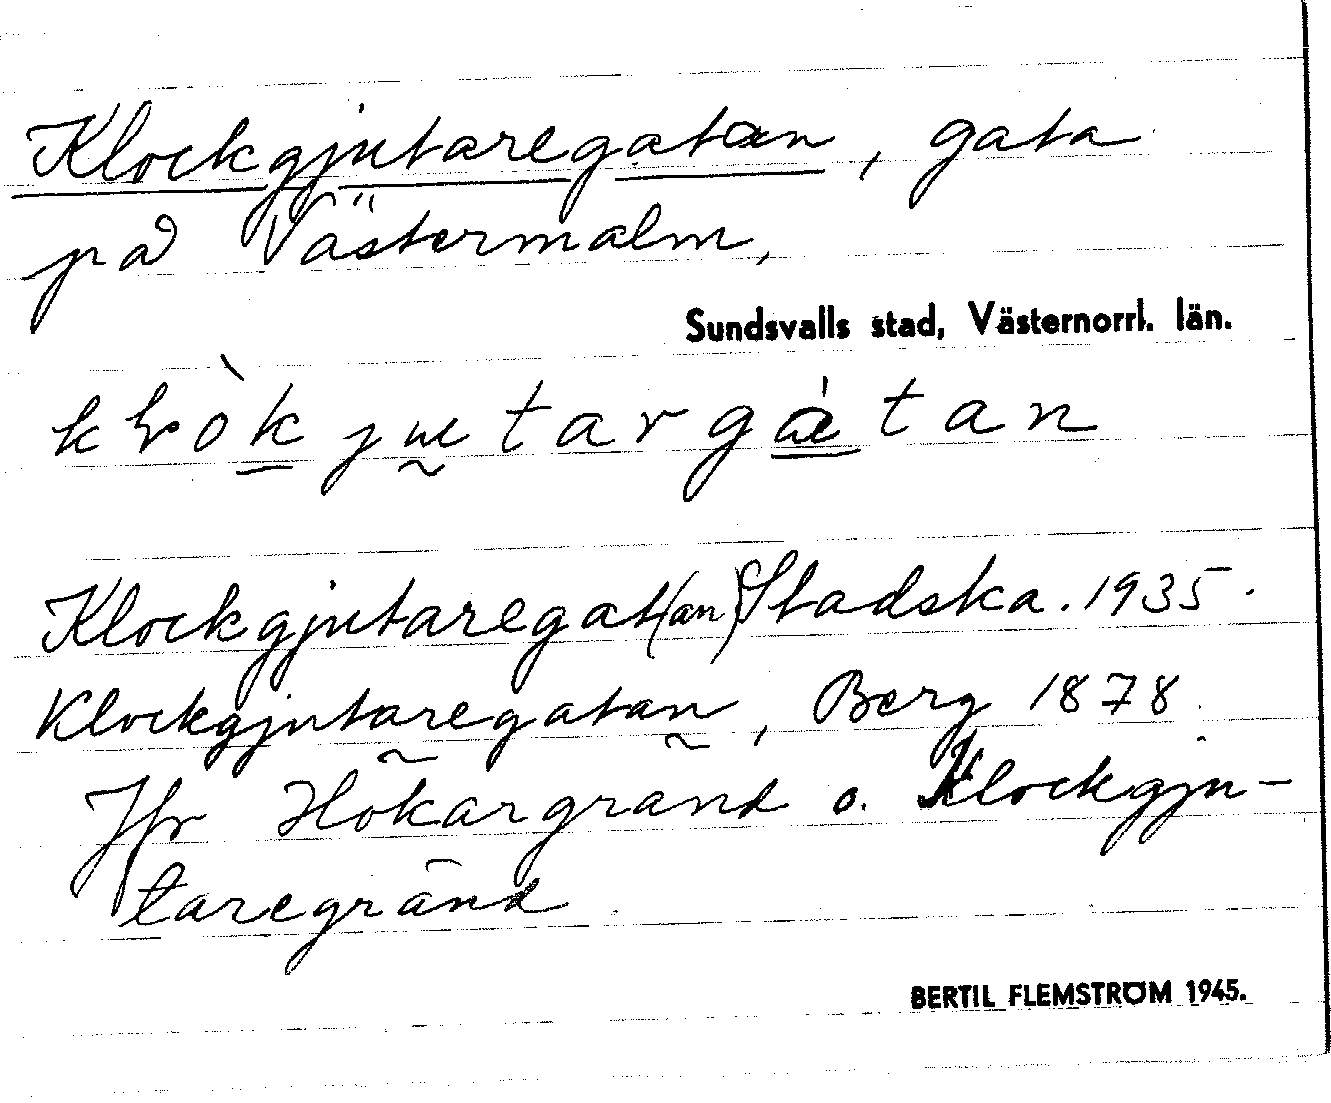 Klockgjutaregatan, gata
på Västermalm,
Sundsvalls stad, Västernorrl. län.
Klockgjutaregat(an) Stadska. 1935.
Klockgjutaregatan, Berg 1878.
Jfr Hökargränd o. Klockgju-
taregränd
BERTIL FLEMSTRÖM 1945.